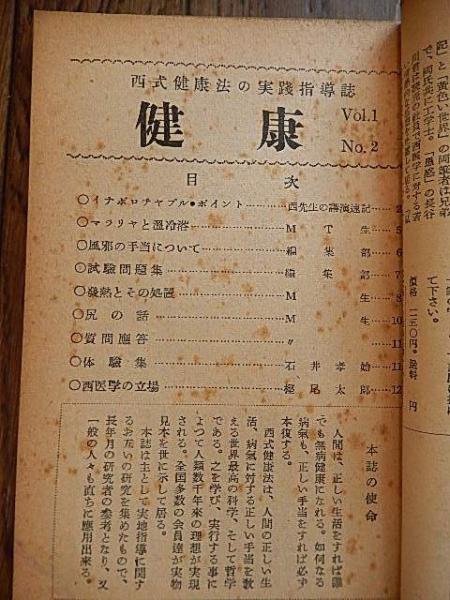 西式健康法の実践指導誌
健康
Vol.1
No.2
目次
○イナボロチャブル・ポイント……西先生の講演速記……2
○マラリヤと温冷浴……M T 生……5
○風邪の手当について……編集部……6
○試験問題集……編集部……7
○発熱とその処置……M 生……8
○尻の話……M 生……10
○質問應答……〃……11
○体験集……石井孝始……11
○西医学の立場……樫尾太郎……12
本誌の使命
人間は、正しい生活をすれば誰
でも無病健康になれる。如何なる
病気も、正しい手当をすれば必ず
本復する。
西式健康法は、人間の正しい生
活、病気に対する正しい手当を教
える世界最高の科学、そして哲学
である。之を学び、実行する事に
よつて人類数千年来の理想が実現
される。全国多数の会員達が実物
見本を世に示して居る。
本誌は主として実地指導に関す
るお互いの研究を集めたもので、
長年月の研究者の参考となり、又
一般の人々も直ちに應用出来る。
記」と「黄色い世界」の両著者は兄弟
で、両氏共に工学士。「愚惑」の長谷
て下さい。
価格 一五〇円。送料 円